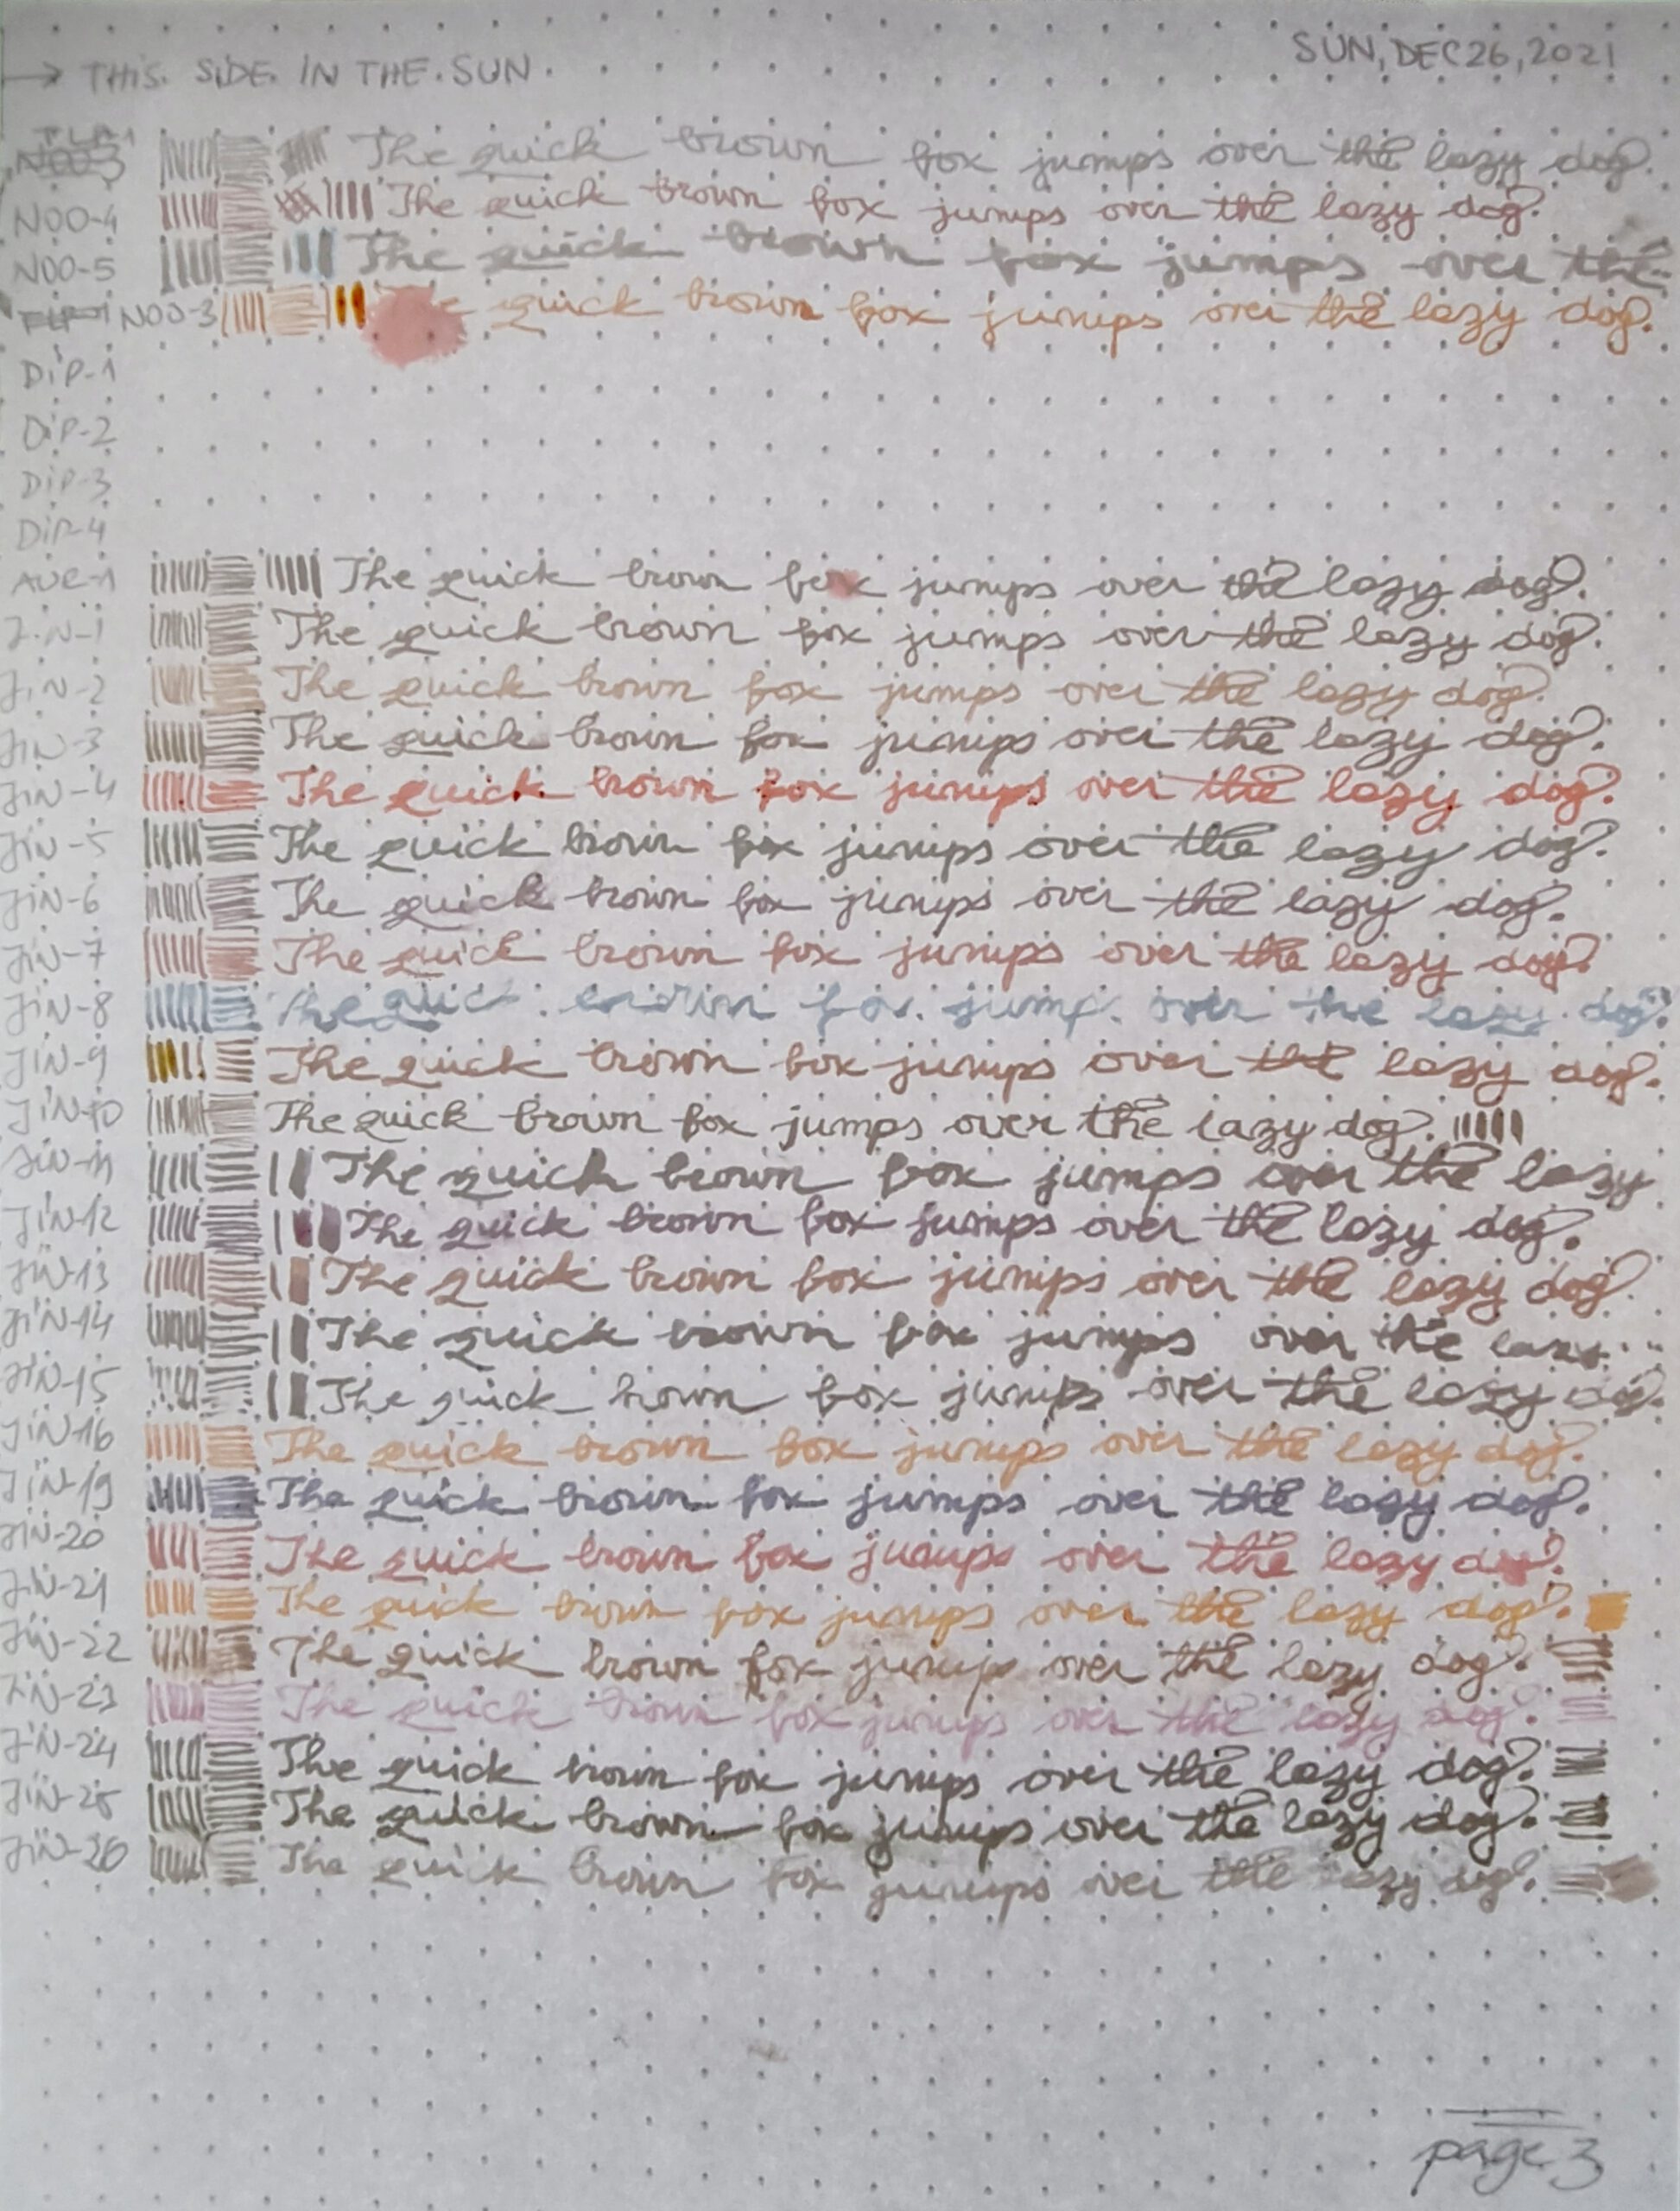 → THIS SIDE IN THE SUN
SUN, DEC 26, 2021
The quick brown fox jumps over the lazy dog.
NOO-4 The quick brown fox jumps over the lazy dog.
NOO-5 The quick brown fox jumps over the
NOO-3 The quick brown fox jumps over the lazy dog.
DIP-1
DIP-2
DIP-3
DIP-4
The quick brown fox jumps over the lazy dog.
JIN-1 The quick brown fox jumps over the lazy dog.
JIN-2 The quick brown fox jumps over the lazy dog.
JIN-3 The quick brown fox jumps over the lazy dog.
JIN-4 The quick brown fox jumps over the lazy dog.
JIN-5 The quick brown fox jumps over the lazy dog.
JIN-6 The quick brown fox jumps over the lazy dog.
JIN-7 The quick brown fox jumps over the lazy dog.
JIN-8 The quick brown fox jump over the lazy dog.
JIN-9 The quick brown fox jumps over the lazy dog.
JIN-10 The quick brown fox jumps over the lazy dog.
JIN-11 The quick brown fox jumps over the lazy
JIN-12 The quick brown fox jumps over the lazy dog.
JIN-13 The quick brown fox jumps over the lazy dog.
JIN-14 The quick brown fox jumps over the lazy
JIN-15 The quick brown fox jumps over the lazy dog.
JIN-16 The quick brown fox jumps over the lazy dog.
JIN-19 The quick brown fox jumps over the lazy dog.
JIN-20 The quick brown fox jumps over the lazy dog.
JIN-21 The quick brown fox jumps over the lazy dog.
JIN-22 The quick brown fox jumps over the lazy dog.
JIN-23 The quick brown fox jumps over the lazy dog.
JIN-24 The quick brown fox jumps over the lazy dog.
JIN-25 The quick brown fox jumps over the lazy dog.
JIN-26 The quick brown fox jumps over the lazy dog.
page 3